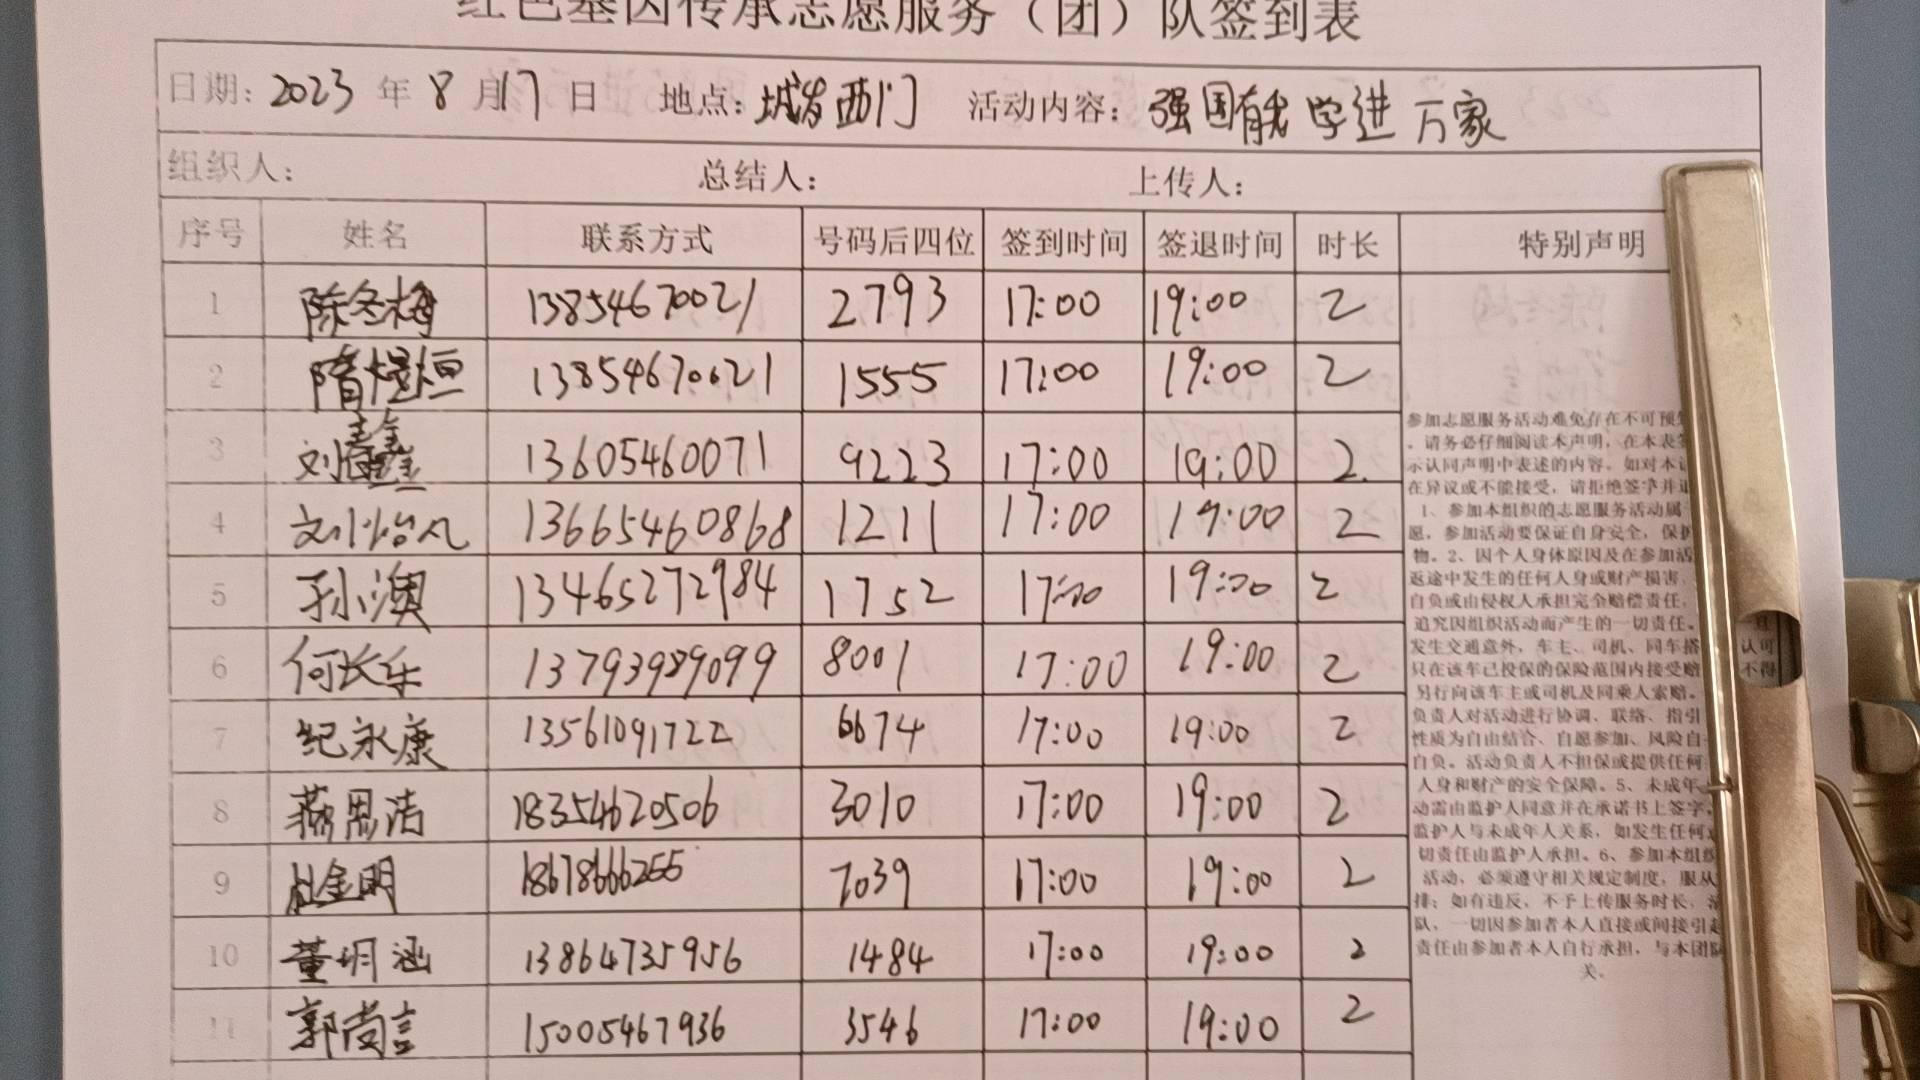 红色基因传承志愿服务（团）队签到表
日期：2023 年 8 月 17 日 地点：城发西门 活动内容：强国有我 学进万家
组织人： 总结人： 上传人：
序号 姓名 联系方式 号码后四位 签到时间 签退时间 时长 特别声明
1 陈冬梅 13854670021 2793 17:00 19:00 2
2 隋煜烜 13854670621 1555 17:00 19:00 2
3 刘 鑫 13605460071 9223 17:00 19:00 2
4 刘怡凡 13665460868 1211 17:00 19:00 2
5 孙澳 13465272984 1752 17:00 19:00 2
6 何长乐 13793989099 8001 17:00 19:00 2
7 纪永康 13561091722 6674 17:00 19:00 2
8 燕思洁 18354620506 3010 17:00 19:00 2
9 杜金明 18678666255 7039 17:00 19:00 2
10 董玥涵 13864735956 1484 17:00 19:00 2
11 郭尚言 15005467936 3546 17:00 19:00 2
参加志愿服务活动难免存在不可预
，请务必仔细阅读本声明，在本表
示认同声明中表述的内容。如对本
在异议或不能接受，请拒绝签字并
1、参加本组织的志愿服务活动属
愿，参加活动要保证自身安全，保
物。2、因个人身体原因及在参加活
返途中发生的任何人身或财产损害，
自负或由侵权人承担完全赔偿责任，
追究因组织活动而产生的一切责任。
发生交通意外，车主、司机、同车搭 认可
只在该车已投保的保险范围内接受赔 不得
另行向该车主或司机及同乘人索赔。
负责人对活动进行协调、联络、指引
性质为自由结合、自愿参加、风险自
自负。活动负责人不担保或提供任何
人身和财产的安全保障。5、未成年
动需由监护人同意并在承诺书上签字，
监护人与未成年人关系，如发生任何
切责任由监护人承担。6、参加本组织
活动，必须遵守相关规定制度，服从
排；如有违反，不予上传服务时长，
队，一切因参加者本人直接或间接引起
责任由参加者本人自行承担，与本团队
关。